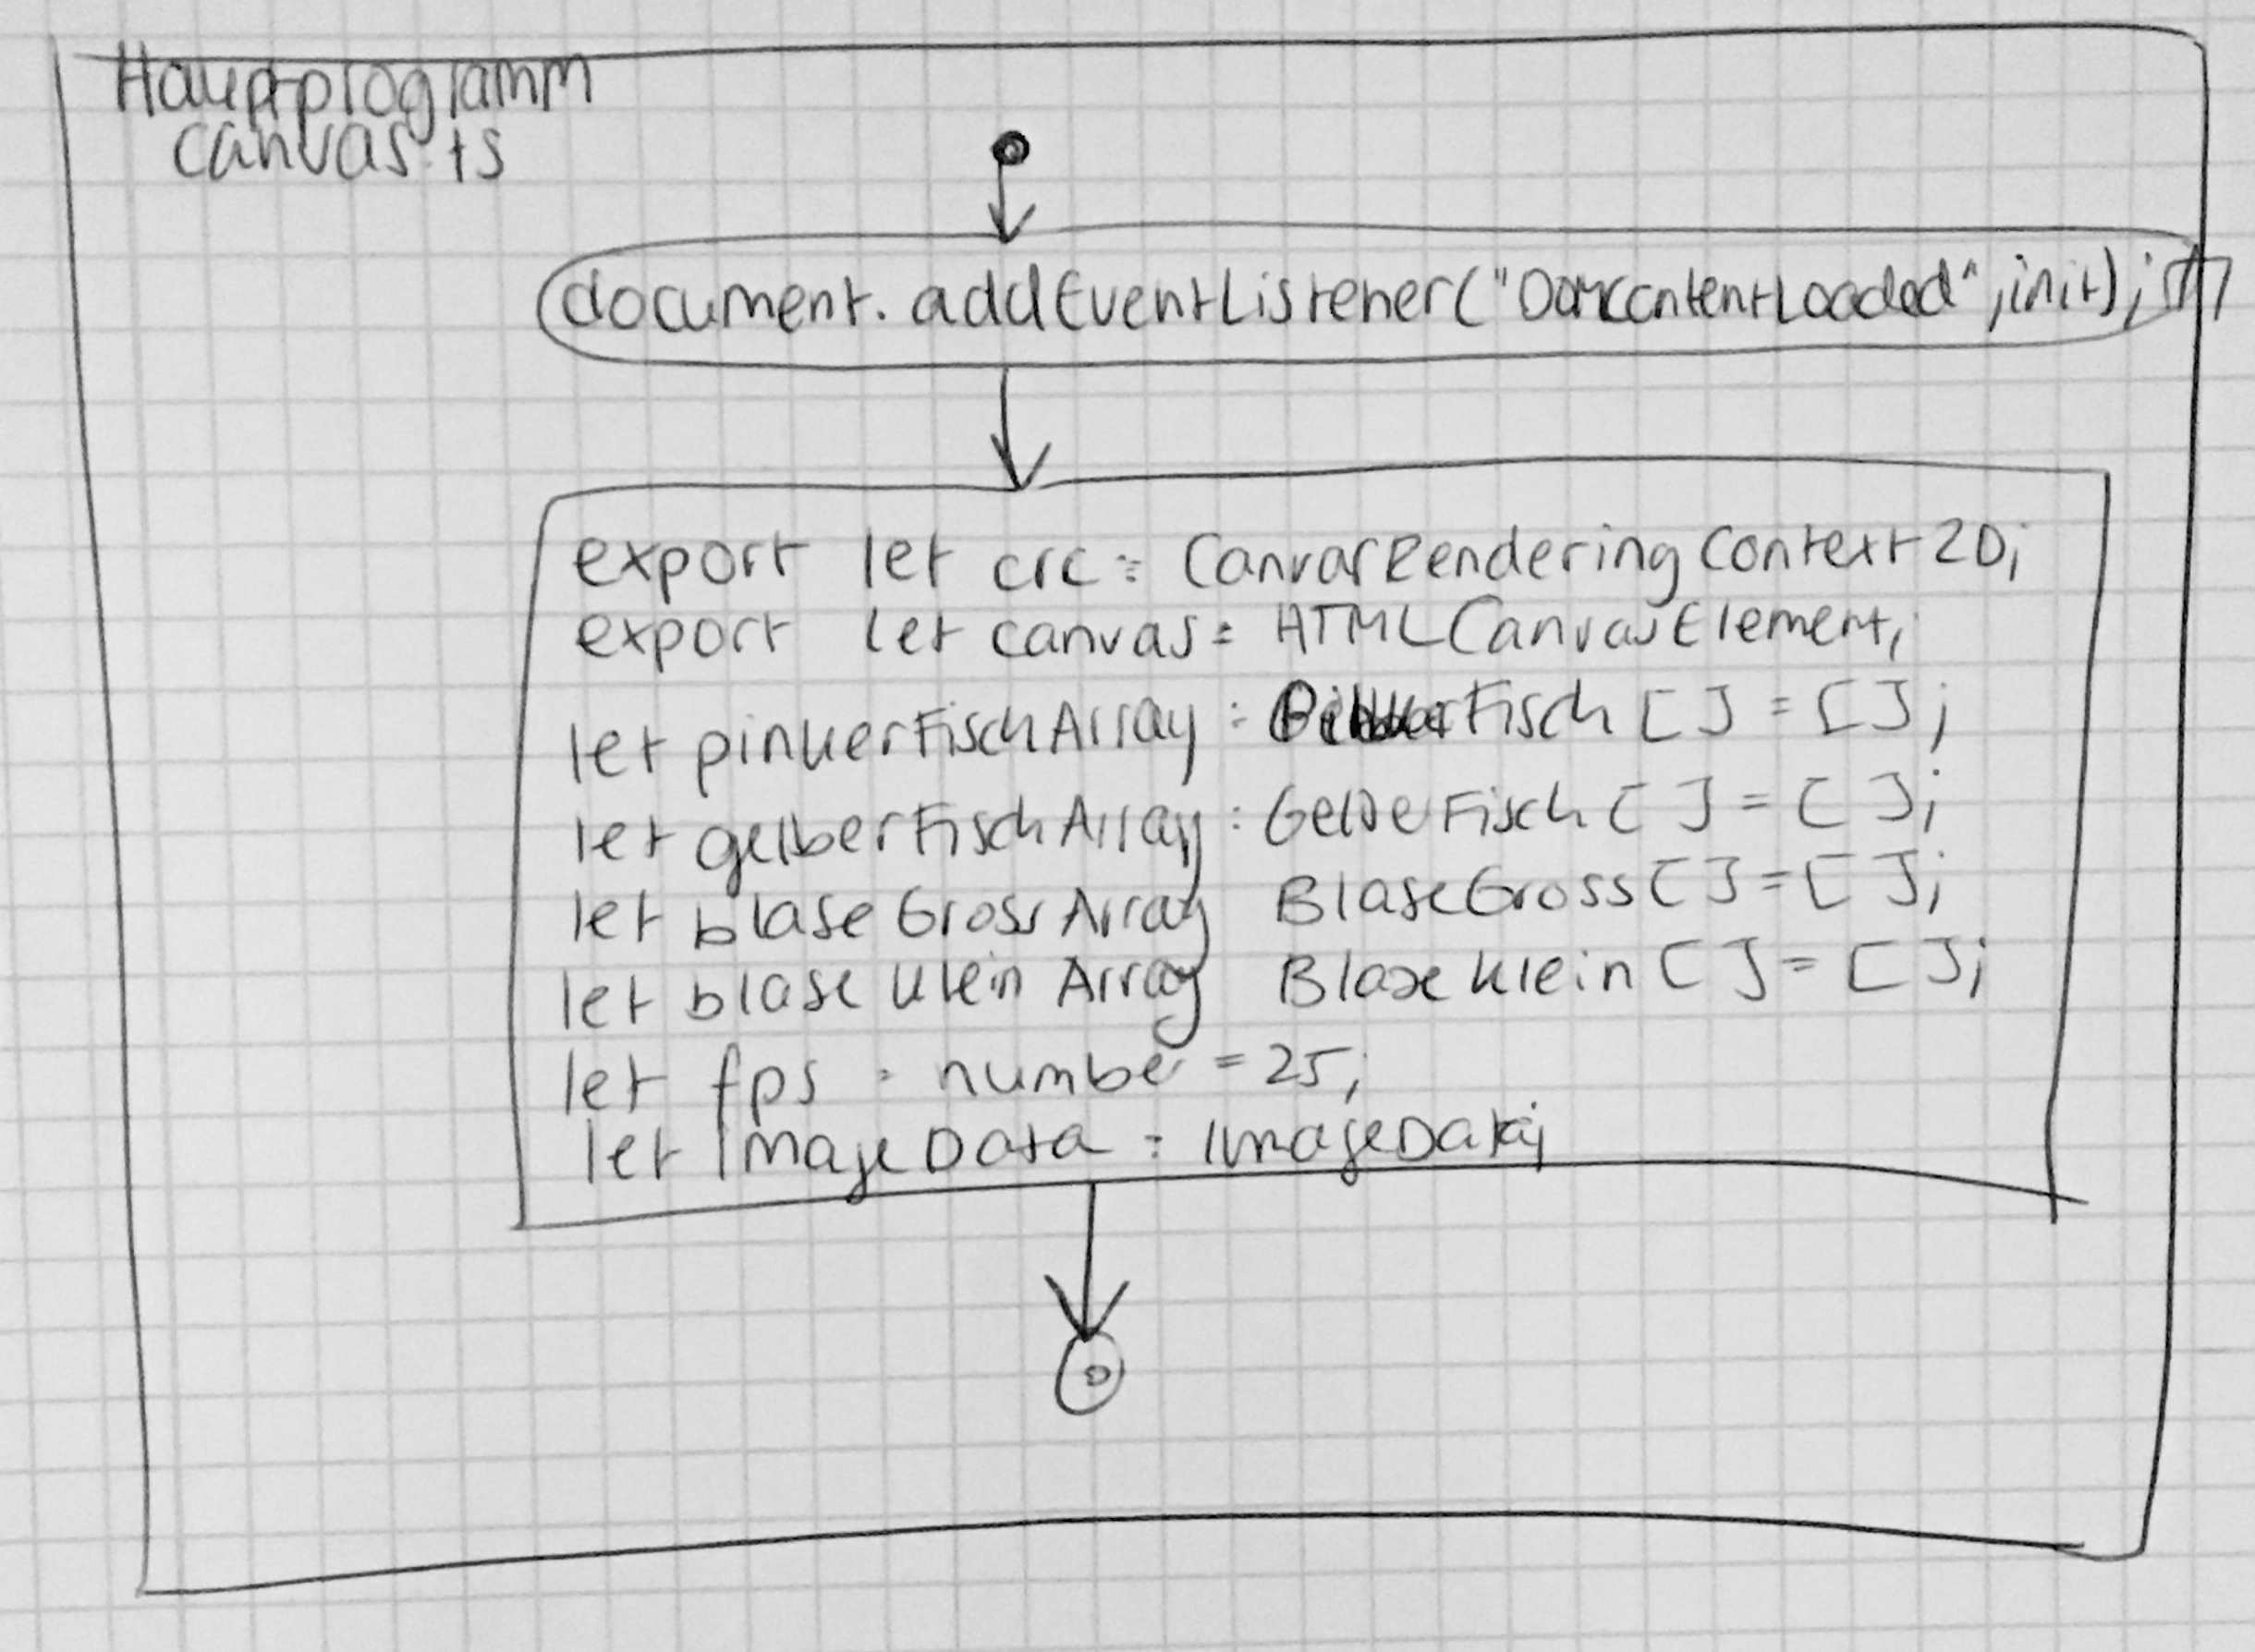 Hauptprogramm
canvas.ts
document.addEventListener("DOMContentLoaded",init);
export let crc: CanvasRenderingContext2D;
export let canvas: HTMLCanvasElement;
let pinkerFischArray: PinkerFisch [] = [];
let gelberFischArray: Fisch [] = [];
let blaseGrossArray BlaseGross [] = [];
let blaseKleinArray BlaseKlein [] = [];
let fps : number = 25;
let imageData : ImageData;